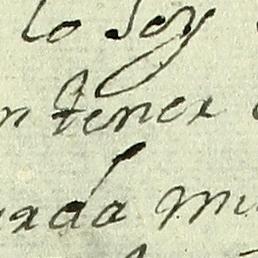 lo soy
n tener
rada mu